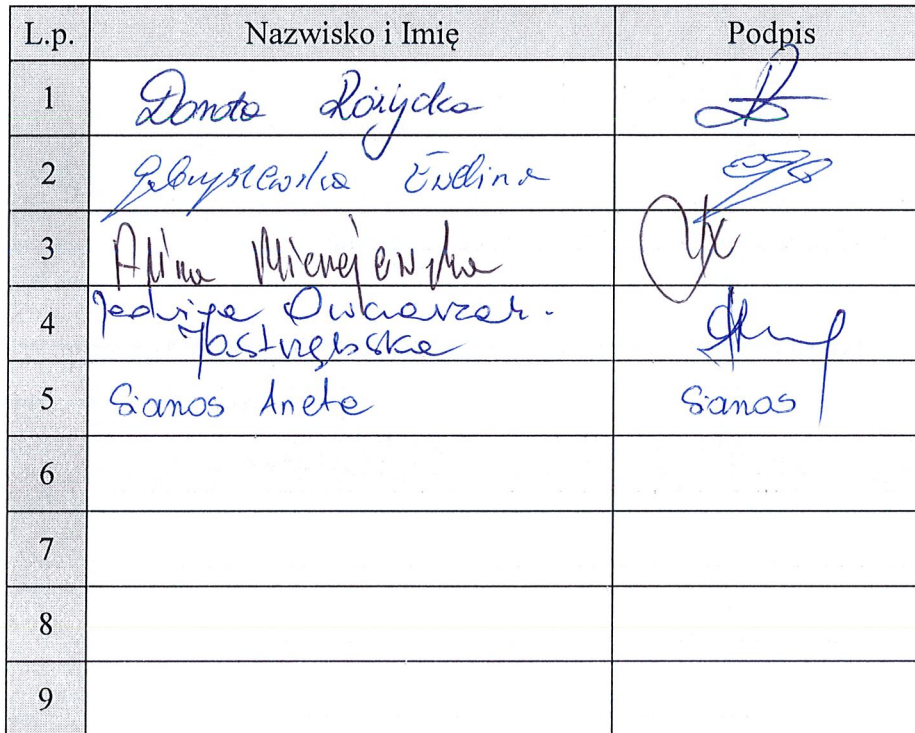 L.p. Nazwisko i Imię Podpis
1 Dorota Różycka
2 Ewelina
3 Alina
4 Jadwiga Owczarzak-
Jastrzębska
5 Sianos Aneta Sianos
6
7
8
9